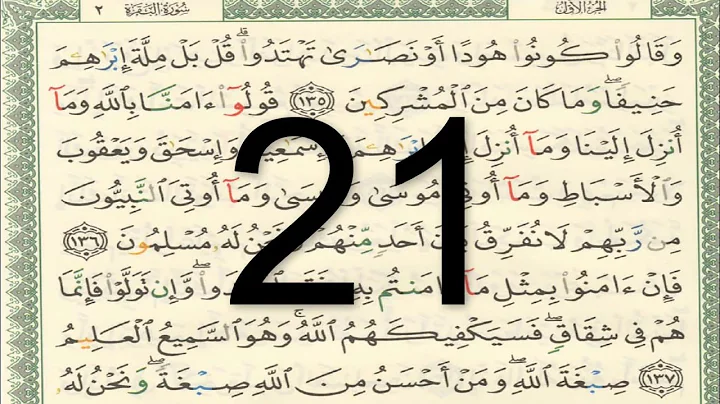 الجزء الأول
سورة البقرة ٢
وَقَالُوا۟ كُونُوا۟ هُودًا أَوْ نَصَـٰرَىٰ تَهْتَدُوا۟ ۗ قُلْ بَلْ مِلَّةَ إِبْرَٰهِـۧمَ
حَنِيفًا ۖ وَمَا كَانَ مِنَ ٱلْمُشْرِكِينَ ١٣٥ قُولُوٓا۟ ءَامَنَّا بِٱللَّهِ وَمَآ
أُنزِلَ إِلَيْنَا وَمَآ أُنزِلَ وَإِسْحَـٰقَ وَيَعْقُوبَ
وَٱلْأَسْبَاطِ وَمَآ أُوتِىَ مُوسَىٰ وَمَآ أُوتِىَ ٱلنَّبِيُّونَ
مِن رَّبِّهِمْ لَا نُفَرِّقُ بَيْنَ أَحَدٍ مِّنْهُمْ وَنَحْنُ لَهُۥ مُسْلِمُونَ ١٣٦
فَإِنْ ءَامَنُوا۟ بِمِثْلِ مَآ ءَامَنتُم بِهِۦ وَّإِن تَوَلَّوْا۟ فَإِنَّمَا
هُمْ فِى شِقَاقٍ ۖ فَسَيَكْفِيكَهُمُ ٱللَّهُ ۚ وَهُوَ ٱلسَّمِيعُ ٱلْعَلِيمُ
١٣٧ صِبْغَةَ ٱللَّهِ ۖ وَمَنْ أَحْسَنُ مِنَ ٱللَّهِ صِبْغَةً ۖ وَنَحْنُ لَهُۥ
21